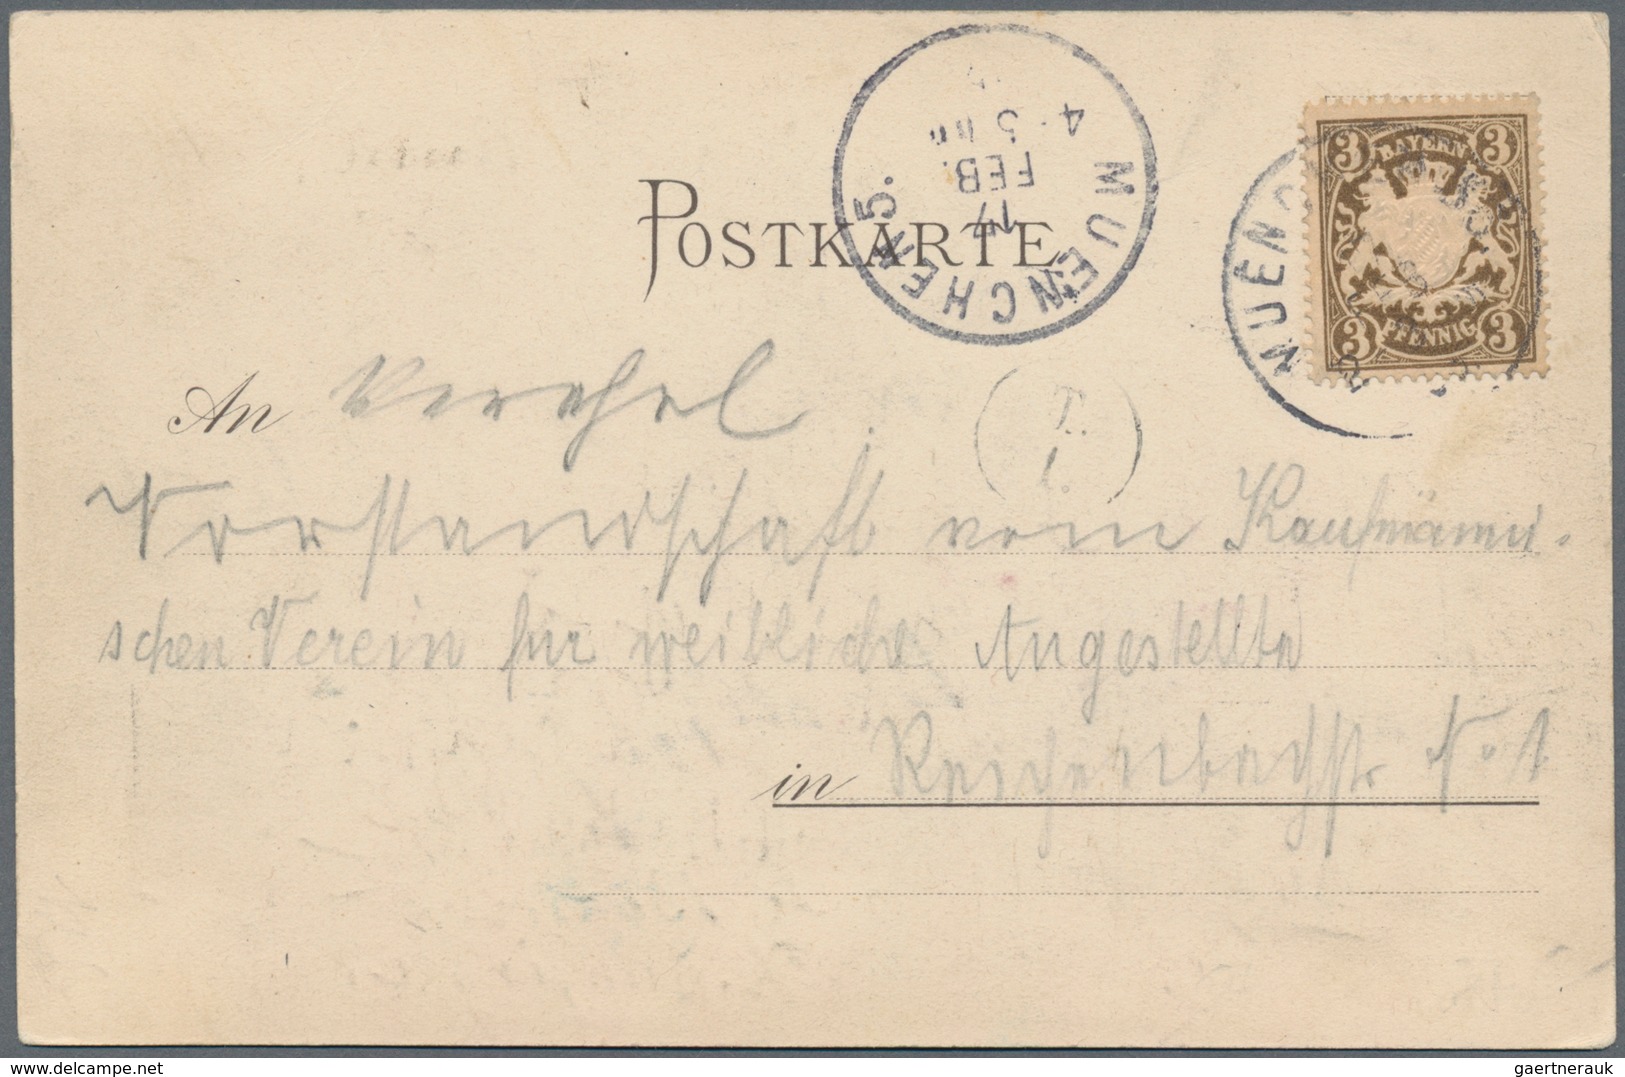 MUENCHEN 5.
17
FEB.
4-5
3 BAYERN 3
3 PFENNIG 3
MUENC
POSTKARTE
An Verehel
T.
1.
Vorstandschaft vom Kaufmänni-
schen Verein für weibliche Angestellte
in Reichenbachstr N. 1
gaertnerauk